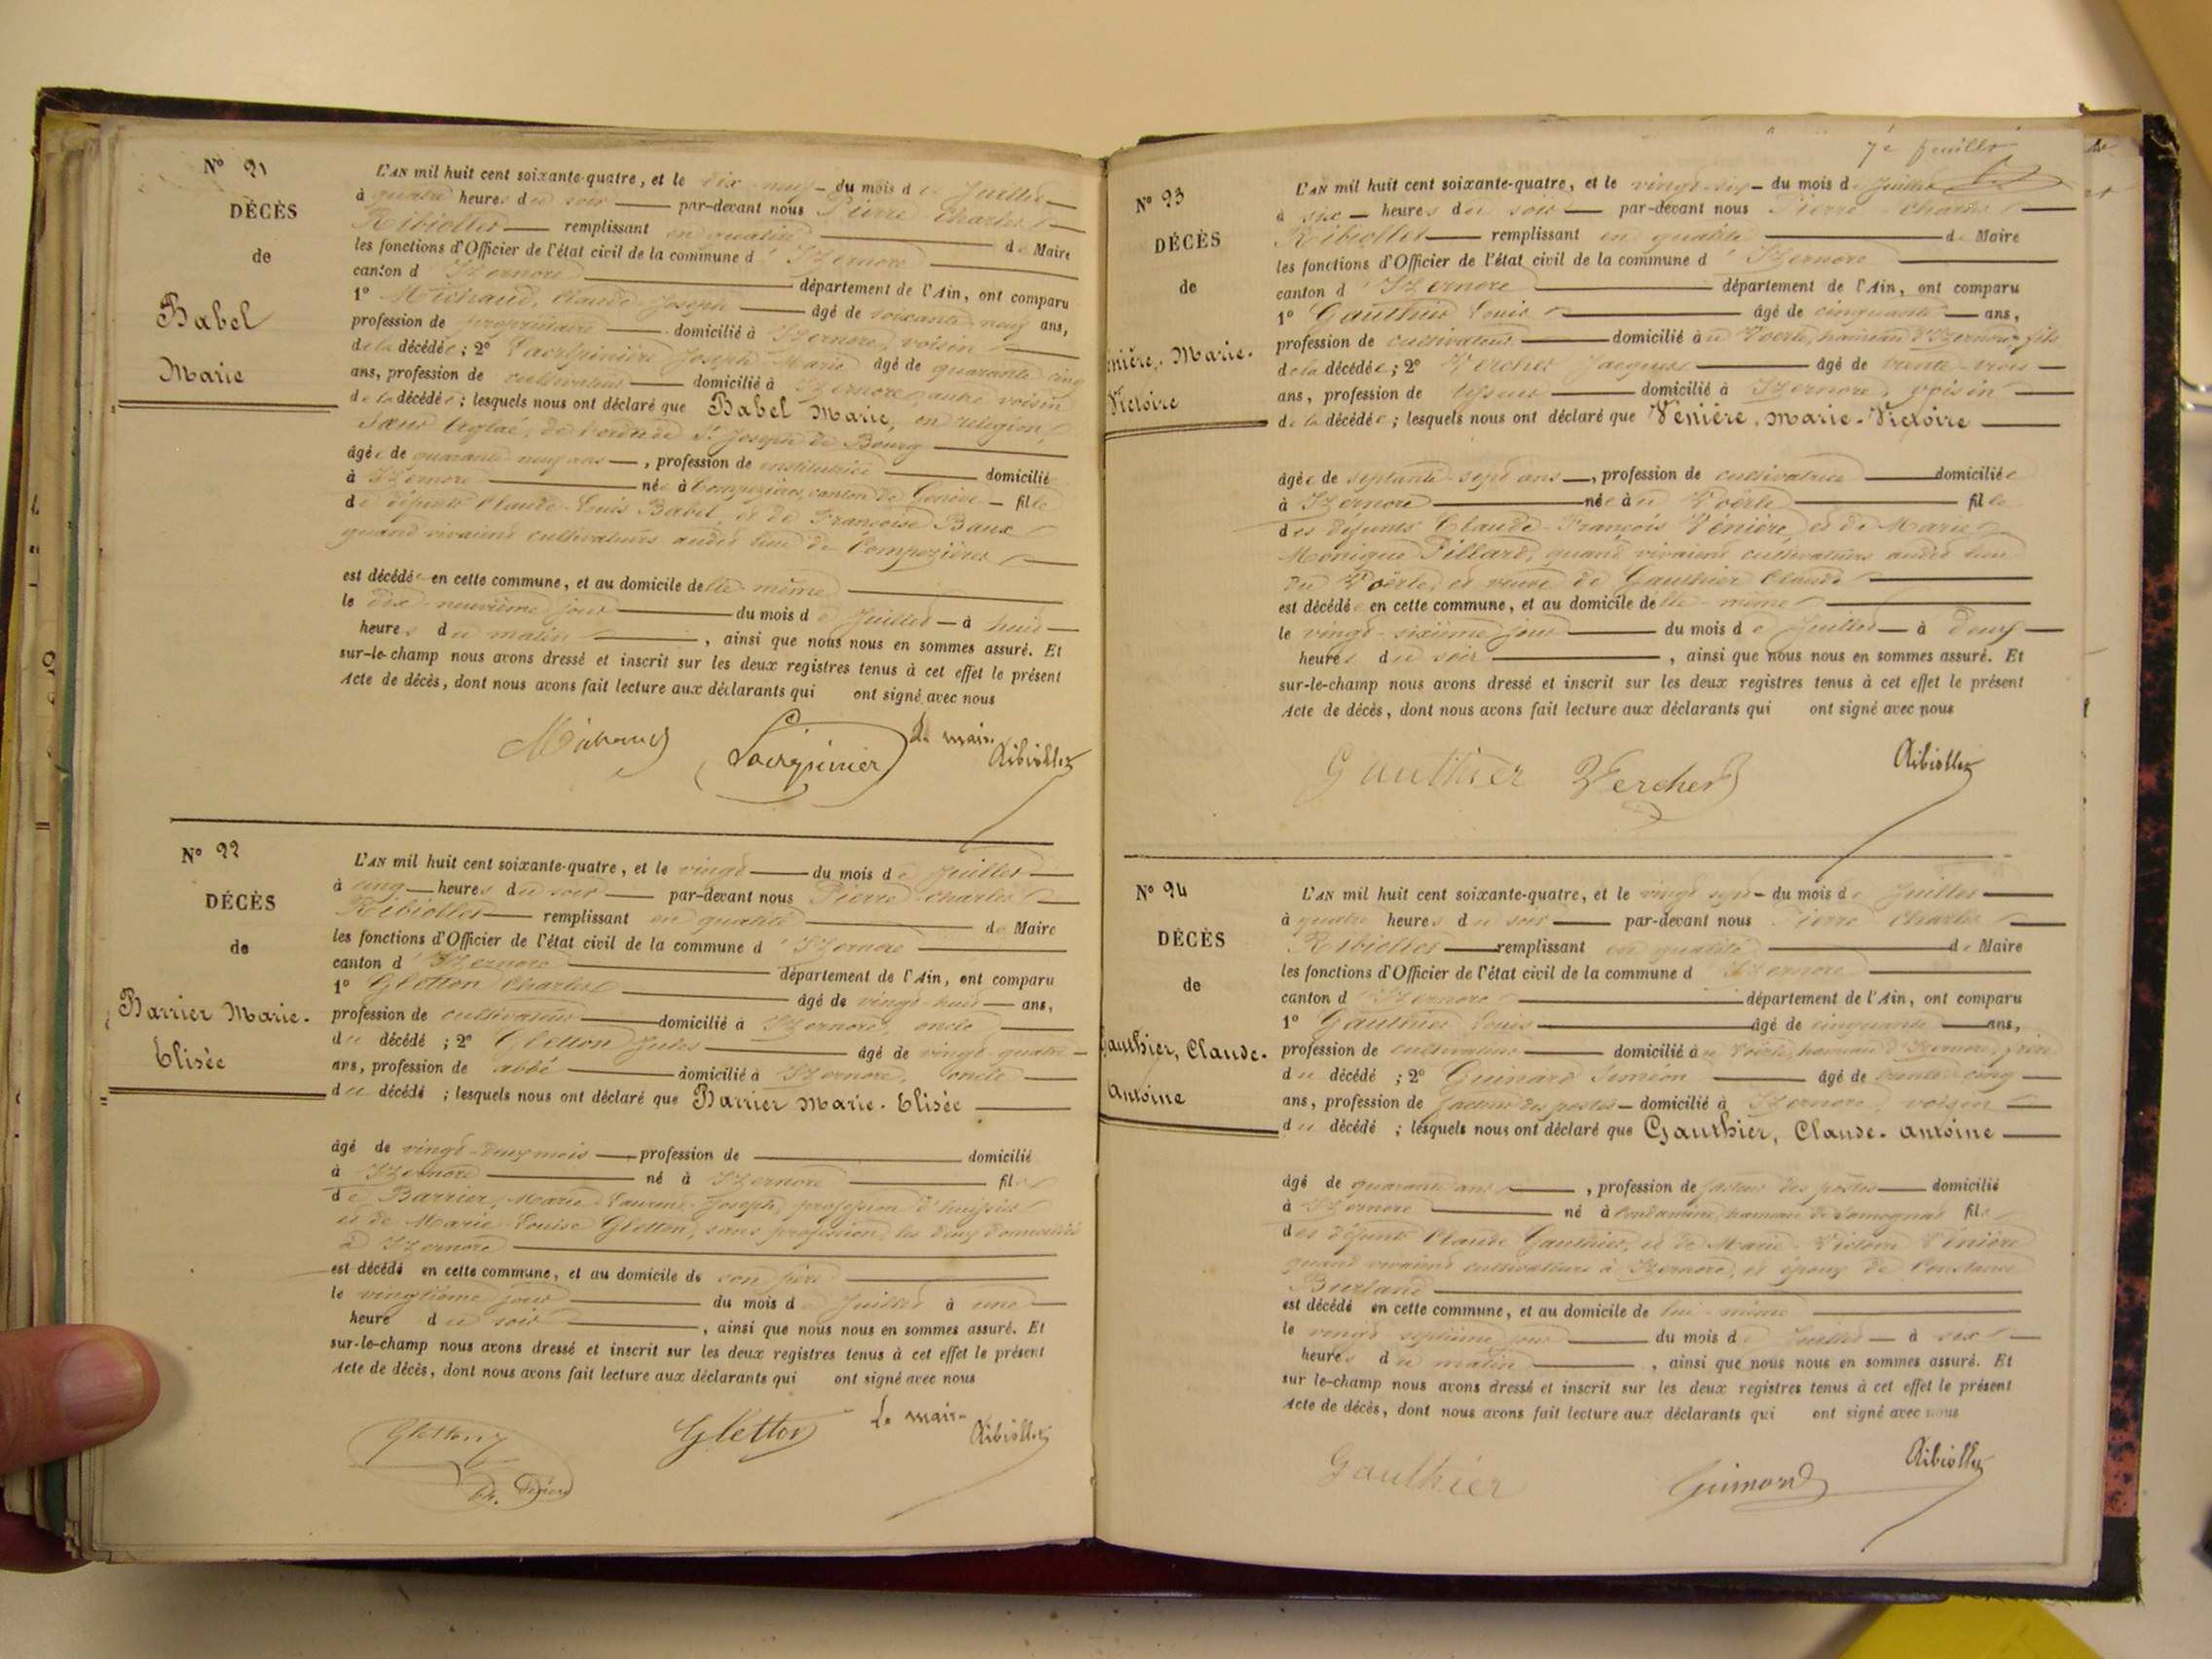 N° 21
DÉCÈS
de
Babel
Marie
L'AN mil huit cent soixante-quatre, et le dix-neuf du mois de Juillet
à quatre heures du soir par-devant nous Pierre Charles
Ribiollet remplissant en qualité de Maire
les fonctions d'Officier de l'état civil de la commune d'Izernore
canton d'Izernore département de l'Ain, ont comparu
1° Michaud, Claude-Joseph âgé de soixante-neuf ans,
profession de propriétaire domicilié à Izernore, voisin
de la décédée; 2° Joseph Marie âgé de quarante cinq
ans, profession de cultivateur domicilié à Izernore, autre voisin
de la décédée; lesquels nous ont déclaré que Babel Marie, en religion
Sœur Aglaé, de l'ordre de St Joseph de Bourg
âgée de quarante-neuf ans, profession de institutrice domicilié
à Izernore née à Compezières, canton de Genève fille
de défunts Claude-Louis Babel, et de Françoise Baux
quand vivaient cultivateurs audit lieu de Compezières
est décédée en cette commune, et au domicile d'elle-même
le dix-neuvième jour du mois de Juillet à huit
heures du matin, ainsi que nous nous en sommes assuré. Et
sur-le-champ nous avons dressé et inscrit sur les deux registres tenus à cet effet le présent
Acte de décès, dont nous avons fait lecture aux déclarants qui ont signé avec nous
Michaud Le maire Ribiollet
N° 22
DÉCÈS
de
Barrier Marie-
Elisée
L'AN mil huit cent soixante-quatre, et le vingt du mois de Juillet
à cinq heures du soir par-devant nous Pierre Charles
Ribiollet remplissant en qualité de Maire
les fonctions d'Officier de l'état civil de la commune d'Izernore
canton d'Izernore département de l'Ain, ont comparu
1° Gletton Charles âgé de vingt-huit ans,
profession de cultivateur domicilié à Izernore, oncle
du décédé; 2° Gletton Jules âgé de vingt-quatre
ans, profession de abbé domicilié à Izernore, oncle
du décédé; lesquels nous ont déclaré que Barrier Marie-Elisée
âgé de vingt-deux mois profession de domicilié
à Izernore né à Izernore fils
de Barrier, Marie-Laurent-Joseph, profession d'huissier
et de Marie-Louise Gletton, sans profession, les deux domiciliés
à Izernore
est décédé en cette commune, et au domicile de son père
le vingtième jour du mois de Juillet à une
heure du soir, ainsi que nous nous en sommes assuré. Et
sur-le-champ nous avons dressé et inscrit sur les deux registres tenus à cet effet le présent
Acte de décès, dont nous avons fait lecture aux déclarants qui ont signé avec nous
Gletton Gletton Le maire Ribiollet
7e feuillet
N° 23
DÉCÈS
de
nière, Marie-
Victoire
L'AN mil huit cent soixante-quatre, et le vingt-six du mois de Juillet
à six heures du soir par-devant nous Pierre Charles
Ribiollet remplissant en qualité de Maire
les fonctions d'Officier de l'état civil de la commune d'Izernore
canton d'Izernore département de l'Ain, ont comparu
1° Gauthier Louis âgé de cinquante ans,
profession de cultivateur domicilié au Voerle, hameau d'Izernore, fils
de la décédée; 2° Vercher Jacques âgé de trente-trois
ans, profession de tisseur domicilié à Izernore, voisin
de la décédée; lesquels nous ont déclaré que Venière, Marie-Victoire
âgée de septante-sept ans, profession de cultivatrice domiciliée
à Izernore née au Voërle fille
des défunts Claude-François Vénière et de Marie
Monique Pillard, quand vivaient cultivateurs audit lieu
du Voërle, et veuve de Gauthier Claude
est décédée en cette commune, et au domicile d'elle-même
le vingt-sixième jour du mois de Juillet à deux
heures du soir, ainsi que nous nous en sommes assuré. Et
sur-le-champ nous avons dressé et inscrit sur les deux registres tenus à cet effet le présent
Acte de décès, dont nous avons fait lecture aux déclarants qui ont signé avec nous
Gauthier Vercher Ribiollet
N° 24
DÉCÈS
de
Gauthier, Claude-
Antoine
L'AN mil huit cent soixante-quatre, et le vingt-sept du mois de Juillet
à quatre heures du soir par-devant nous Pierre Charles
Ribiollet remplissant en qualité de Maire
les fonctions d'Officier de l'état civil de la commune d'Izernore
canton d'Izernore département de l'Ain, ont comparu
1° Gauthier Louis âgé de cinquante ans,
profession de cultivateur domicilié au Voërle, hameau d'Izernore, frère
du décédé; 2° Guinard Siméon âgé de trente-cinq
ans, profession de facteur des postes domicilié à Izernore, voisin
du décédé; lesquels nous ont déclaré que Gauthier, Claude-Antoine
âgé de quarante ans, profession de facteur des postes domicilié
à Izernore né à Condamine, hameau de Samognat fils
des défunts Claude Gauthier, et de Marie-Victoire Vénière
quand vivaient cultivateurs à Izernore, et époux de Constance
Burland
est décédé en cette commune, et au domicile de lui-même
le vingt-septième jour du mois de Juillet à six
heures du matin, ainsi que nous nous en sommes assuré. Et
sur le-champ nous avons dressé et inscrit sur les deux registres tenus à cet effet le présent
Acte de décès, dont nous avons fait lecture aux déclarants qui ont signé avec nous
Gauthier Ribiollet